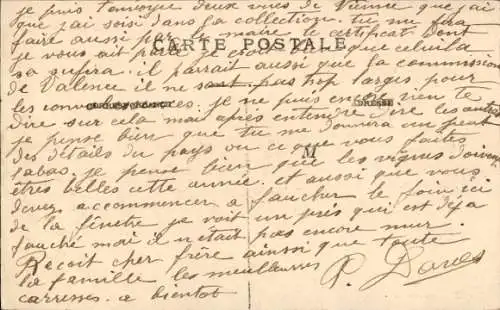 je puis t'envoyer deux vues de Vienne que j'ai
que j'ai soisi dans la collection. tu me fra
faire aussi par le maire le certificat dont
CARTE POSTALE
je vous ait parlé je que celuila
sa sufira. il parrait aussi que la commission
de Valence il ne sont pas trop larges pour
les convalescences. je ne puis encore rien te
CORRESPONDANCE
ADRESSE
dire sur cela mai apres entendre dire les autres
je pense bien que tu me donnera un peut
M
des détails du pays ou ce que vous faites
labas. je pense bien que les vignes doivent
êtres belles cette année. et aussi que vous
devez accommencer a faucher le foin ici
de la fenetre je voit un près qui est déja
fauché mai il n'était pas encore mur.
Recoit cher frère ainsi que toute
la famille les meulleures
carresses. a bientot
P.